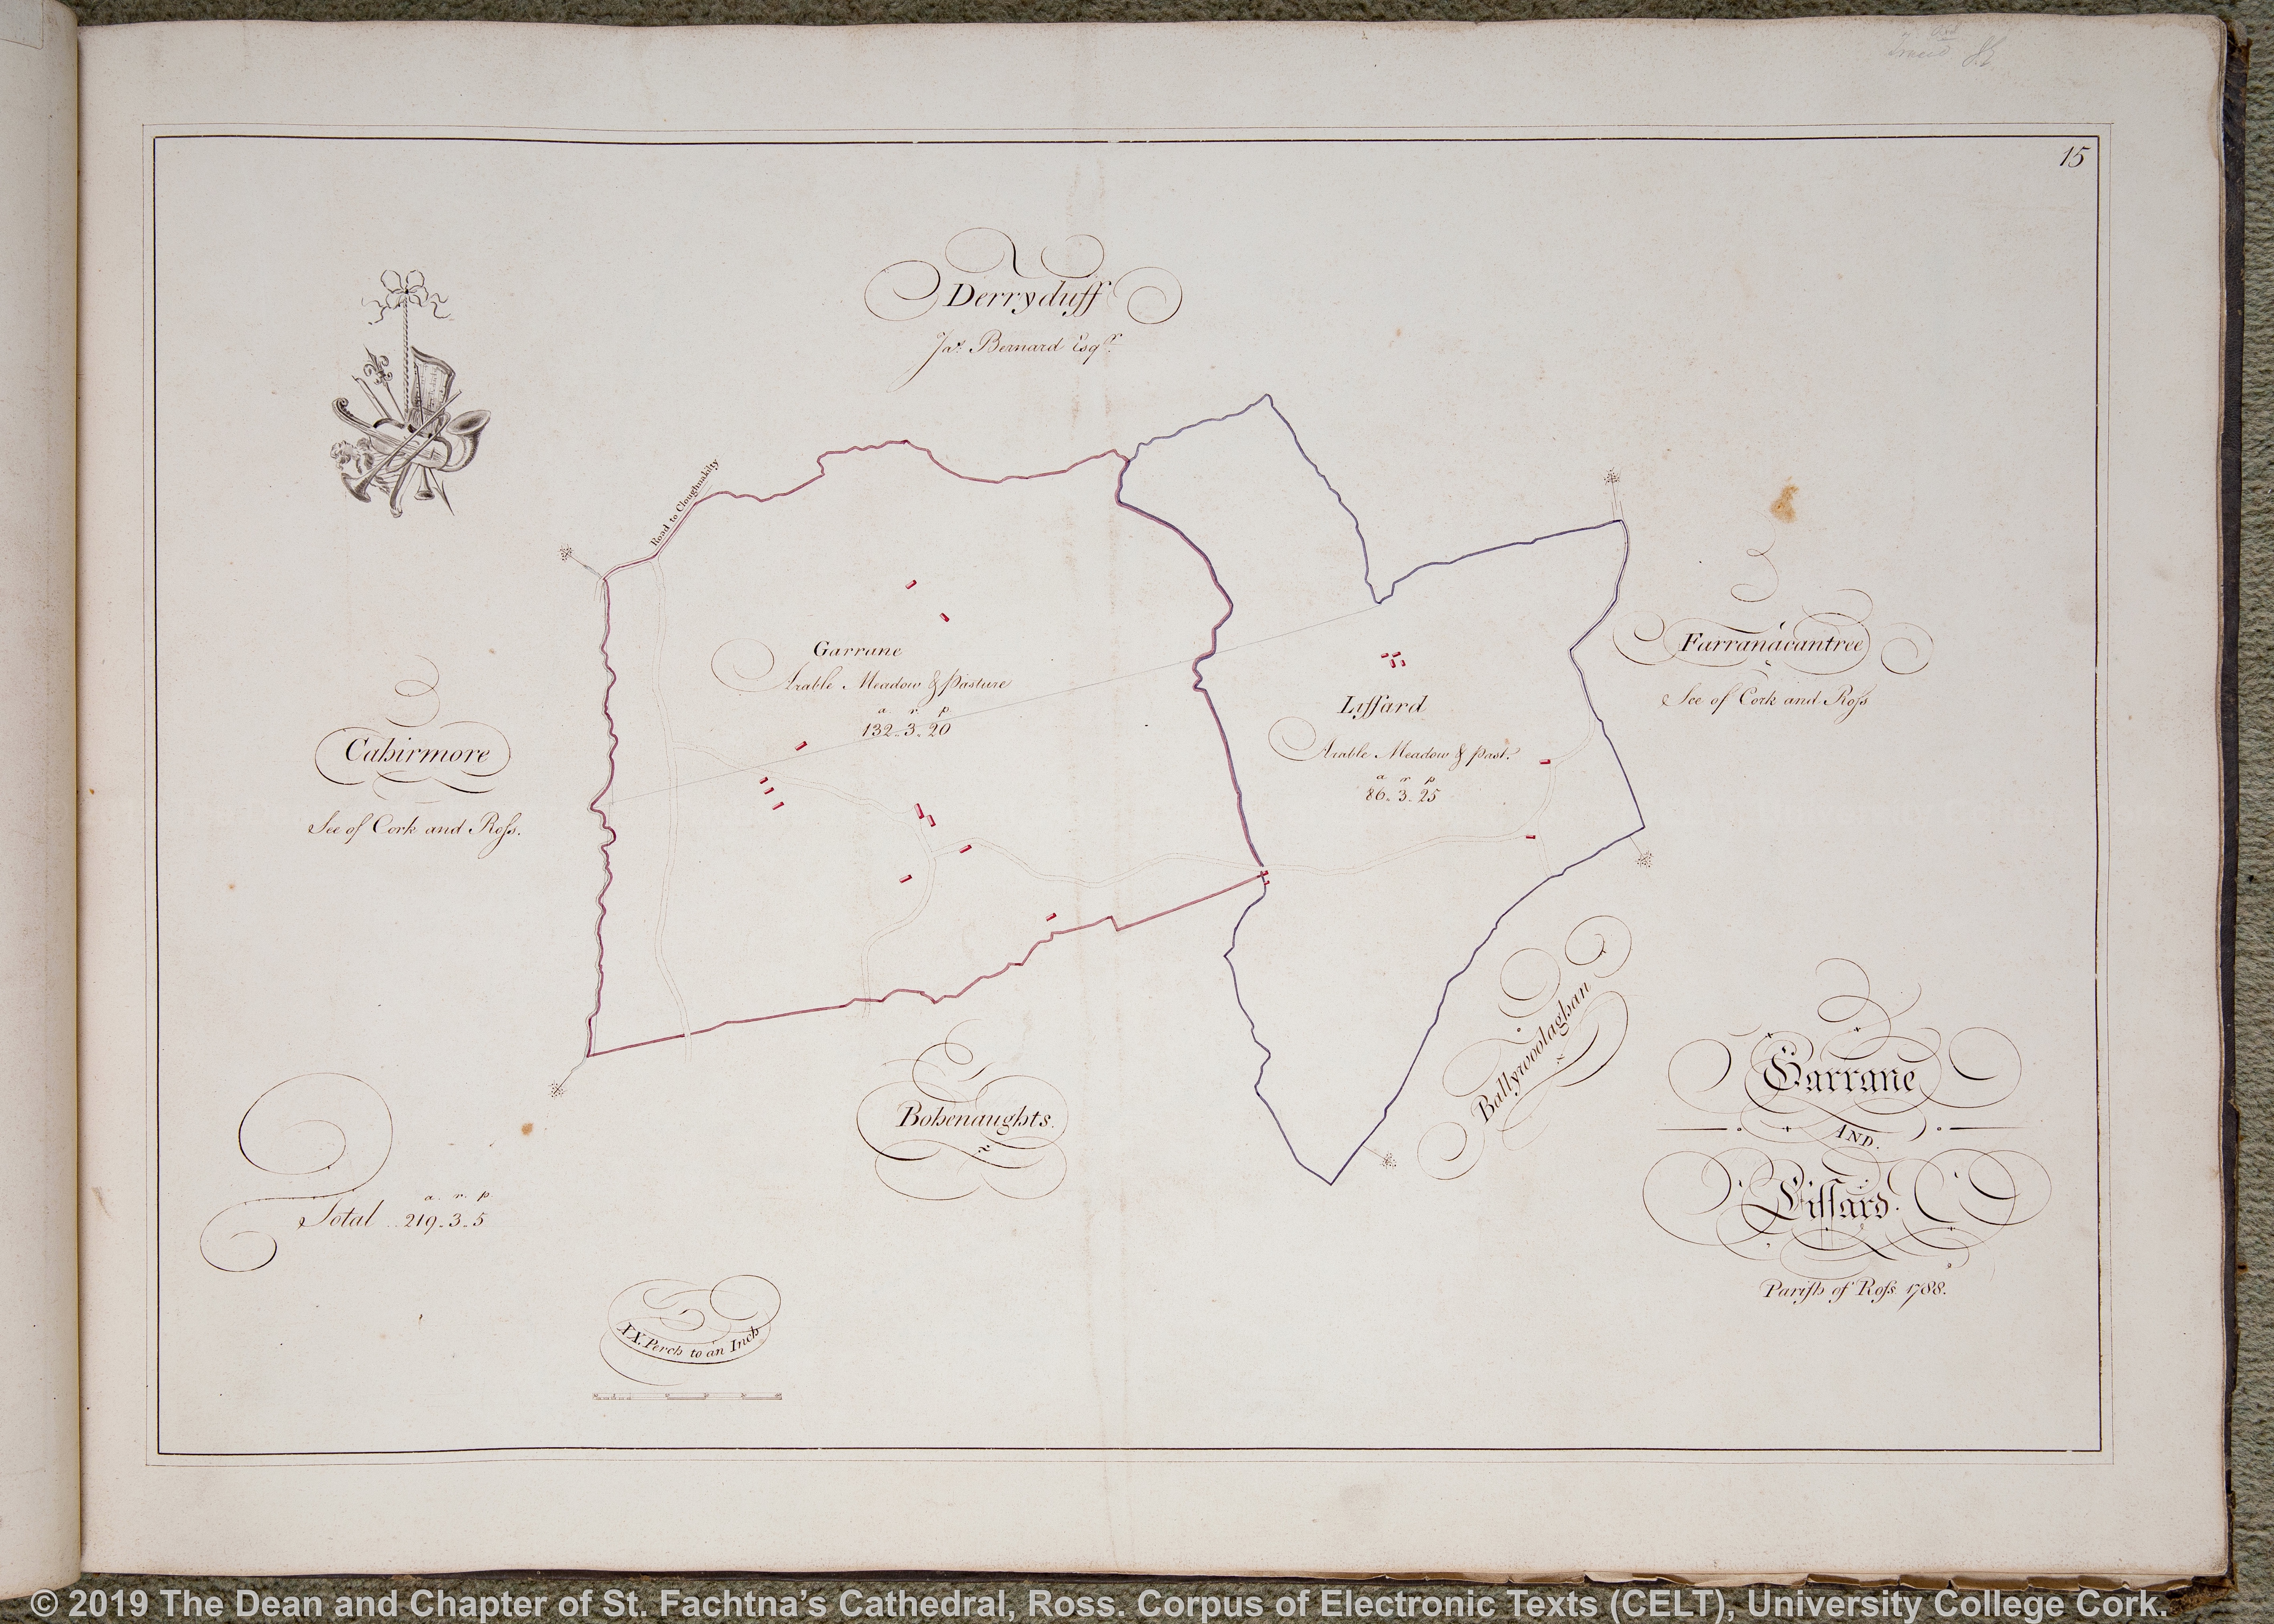 15
Derryduff
Jas. Bernard Esqr.
Road to Cloughnakilty
Garrane
Arable Meadow & Pasture
a. r. p.
132..3..20
Lissard
Arable Meadow & Past.
a r p
86..3..25
Farranacantree
See of Cork and Ross
Cahirmore
See of Cork and Ross.
Bohenaughts.
Ballywoolaghan
Garrane
AND.
Lissard.
Parish of Ross 1788.
a. r. p.
Total .. 219..3..5
XX. Perch to an Inch
© 2019 The Dean and Chapter of St. Fachtna's Cathedral, Ross. Corpus of Electronic Texts (CELT), University College Cork.